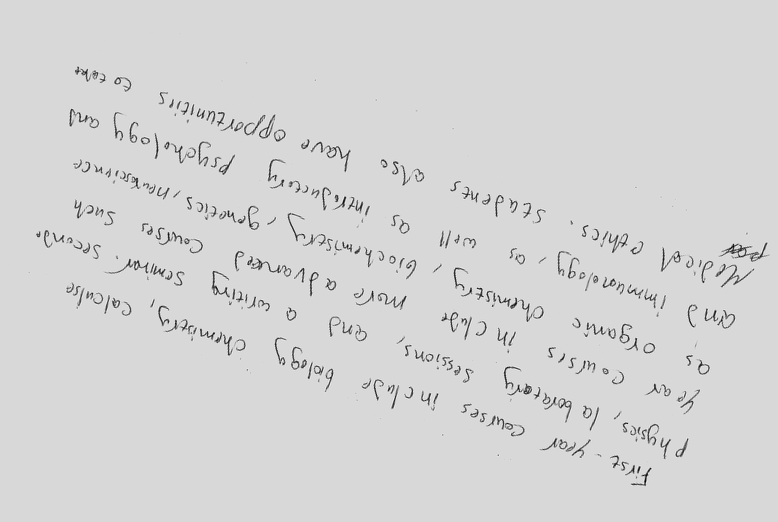 First-year courses include biology, chemistry, calculse
physics, laboratory sessions, and a writing seminar. Second-
year courses include more advanced courses such
as organic chemistry, biochemistry, genetics, neuroscience
and immunology, as well as introductory psychology and
Medical ethics. Students also have opportunities to take